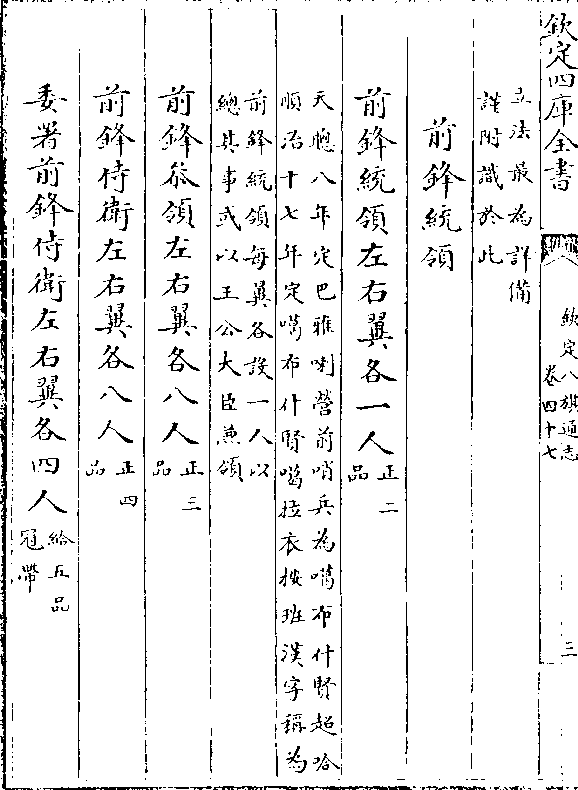 欽定四庫全書
欽定八旗通志
卷四十七
三
立法最為詳備
謹附識於此
前鋒統領
前鋒統領左右翼各一人正二
品
天聰八年定巴雅喇營前哨兵為噶布什賢超哈
順治十七年定噶布什賢噶拉衣按班漢字稱為
前鋒統領每翼各設一人以
總其事或以王公大臣兼領
前鋒叅領左右翼各八人正三
品
前鋒侍衛左右翼各八人正四
品
委署前鋒侍衛左右翼各四人給五品
冠帶